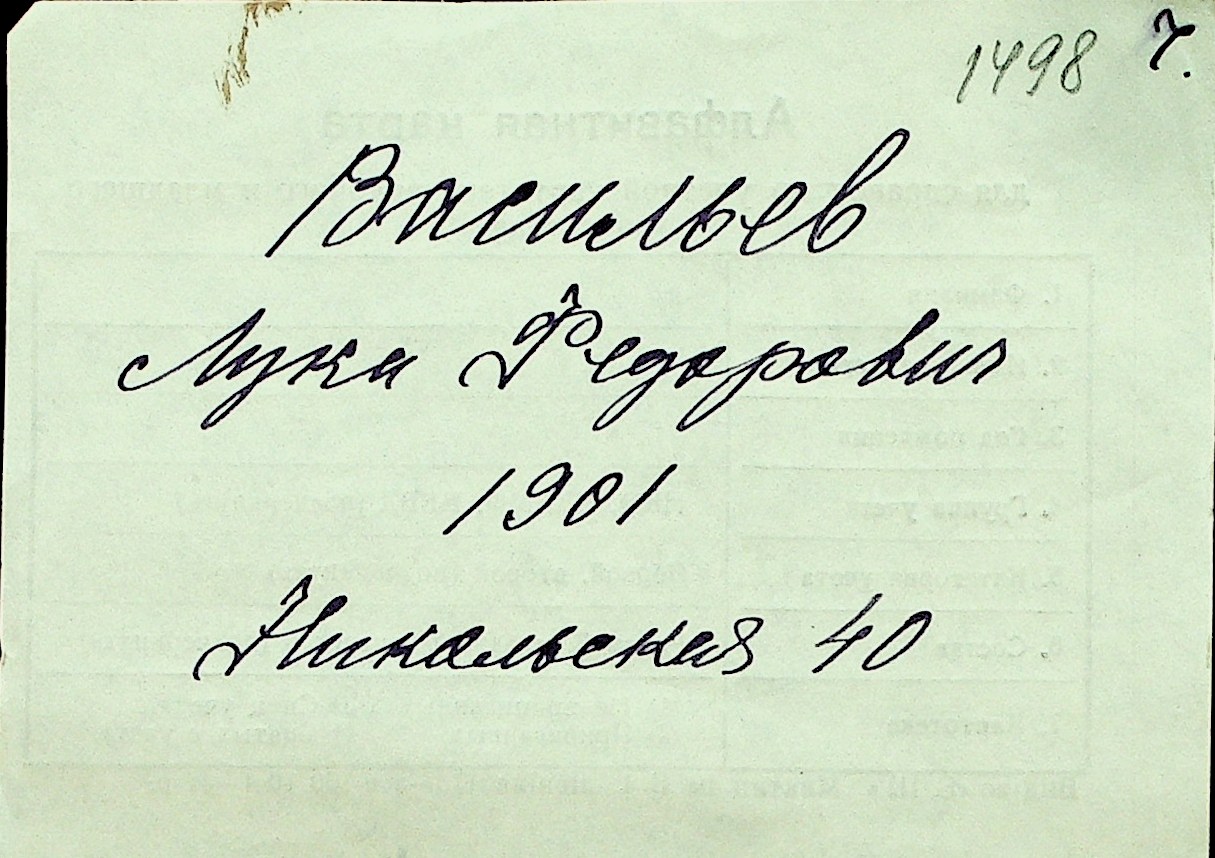 1498 7.
Васильев
Лука Федорович
1901
Никольская 40